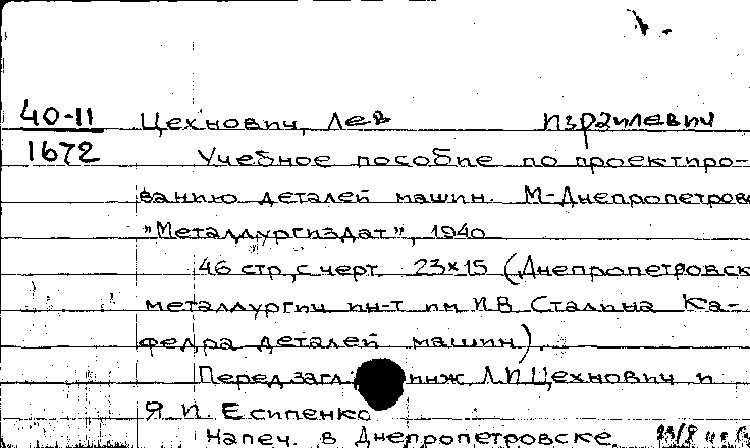 40-11 Цехнович, Лев Израилевич
1672 Учебное пособие по проектиро-
ванию деталей машин. М-Днепропетровс
"Металлургиздат", 1940
46 стр., с черт. 23×15 (Днепропетровск
металлургич ин-т им И.В. Сталина Ка-
федра деталей машин).
Перед загл. инж. Л.И. Цехнович и
Я. И. Есипенко
Напеч. в Днепропетровске.